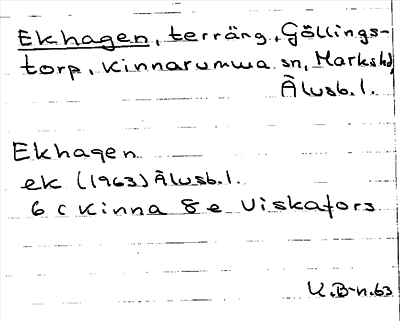 Ekhagen, terräng, Göllings-
torp, Kinnarumma sn, Marks hd,
Älvsb. l.
Ekhagen
ek (1963) Älvsb. l.
6 c Kinna 8 e Viskafors
K. B-n. 63